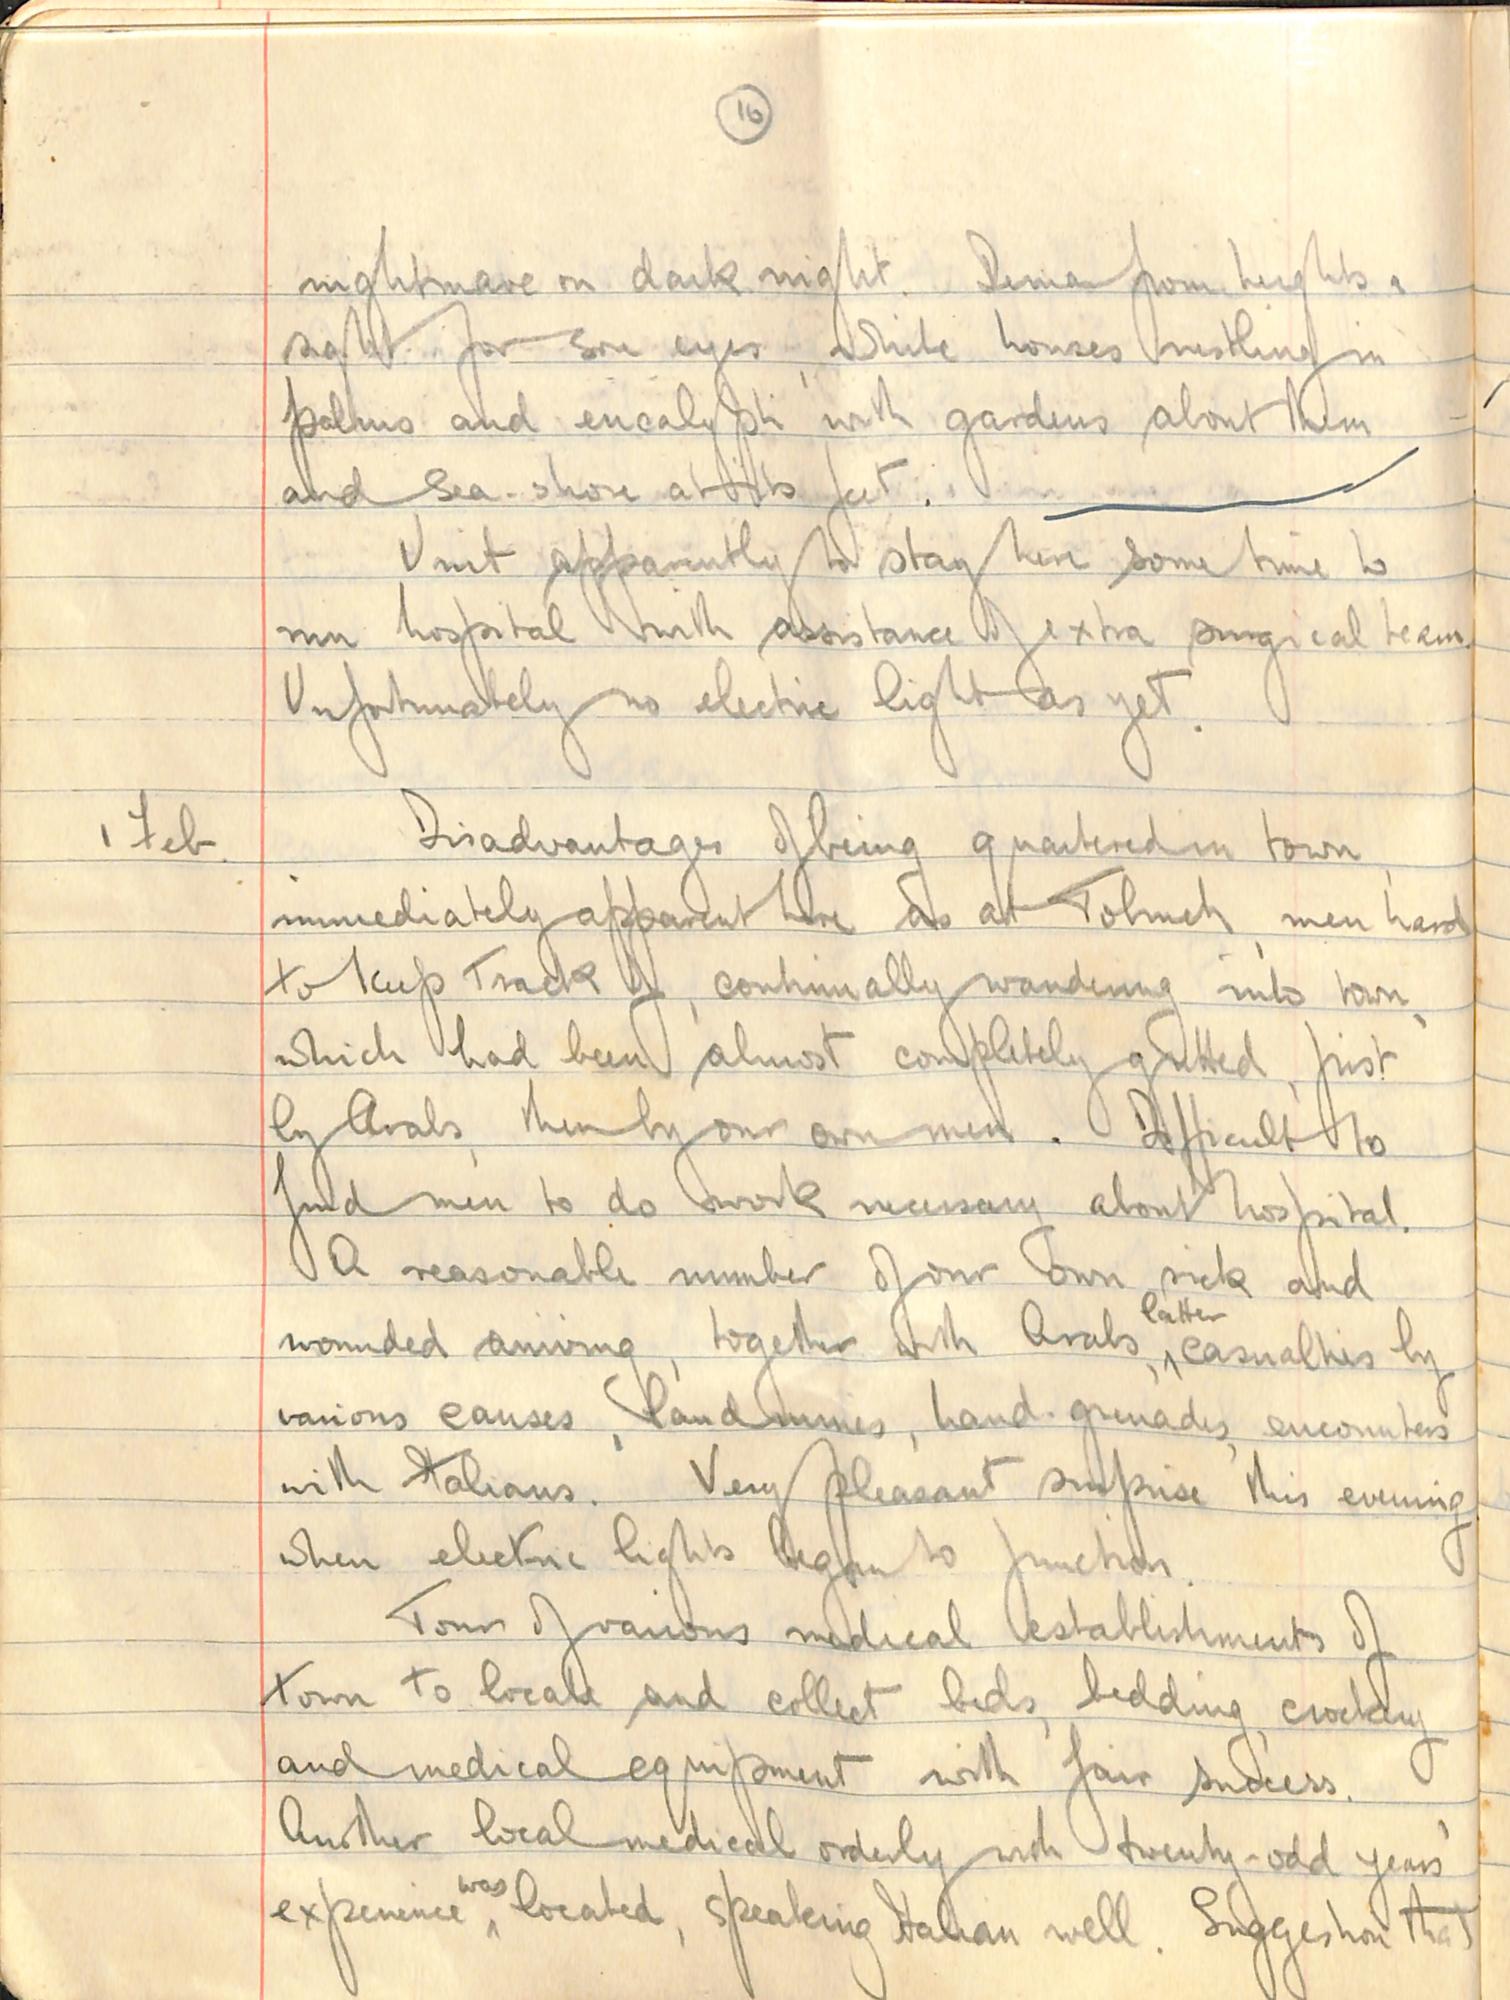 16
nightmare on dark night. Derna from heights a
sight for sore eyes, white houses nestling in
palms and eucalypti with gardens about them
and sea-shore at its feet.
Unit apparently to stay here some time to
run hospital with assistance of extra surgical team.
Unfortunately no electric light as yet.
1 Feb. Disadvantages of being quartered in town
immediately apparent here as at Tolmeh, men hard
to keep track of, continually wandering into town,
which had been almost completely gutted, first
by Arabs, then by our own men. Difficult to
find men to do work necessary about hospital.
A reasonable number of our own sick and
wounded arriving, together with Arabs, latter casualties by
various causes, land mines, hand-grenades, encounters
with Italians. Very pleasant surprise this evening
when electric lights began to function.
Tour of various medical establishments of
town to locate and collect beds, bedding, crockery
and medical equipment with fair success.
Another local medical orderly with twenty-odd years'
experience was located, speaking Italian well. Suggestion that